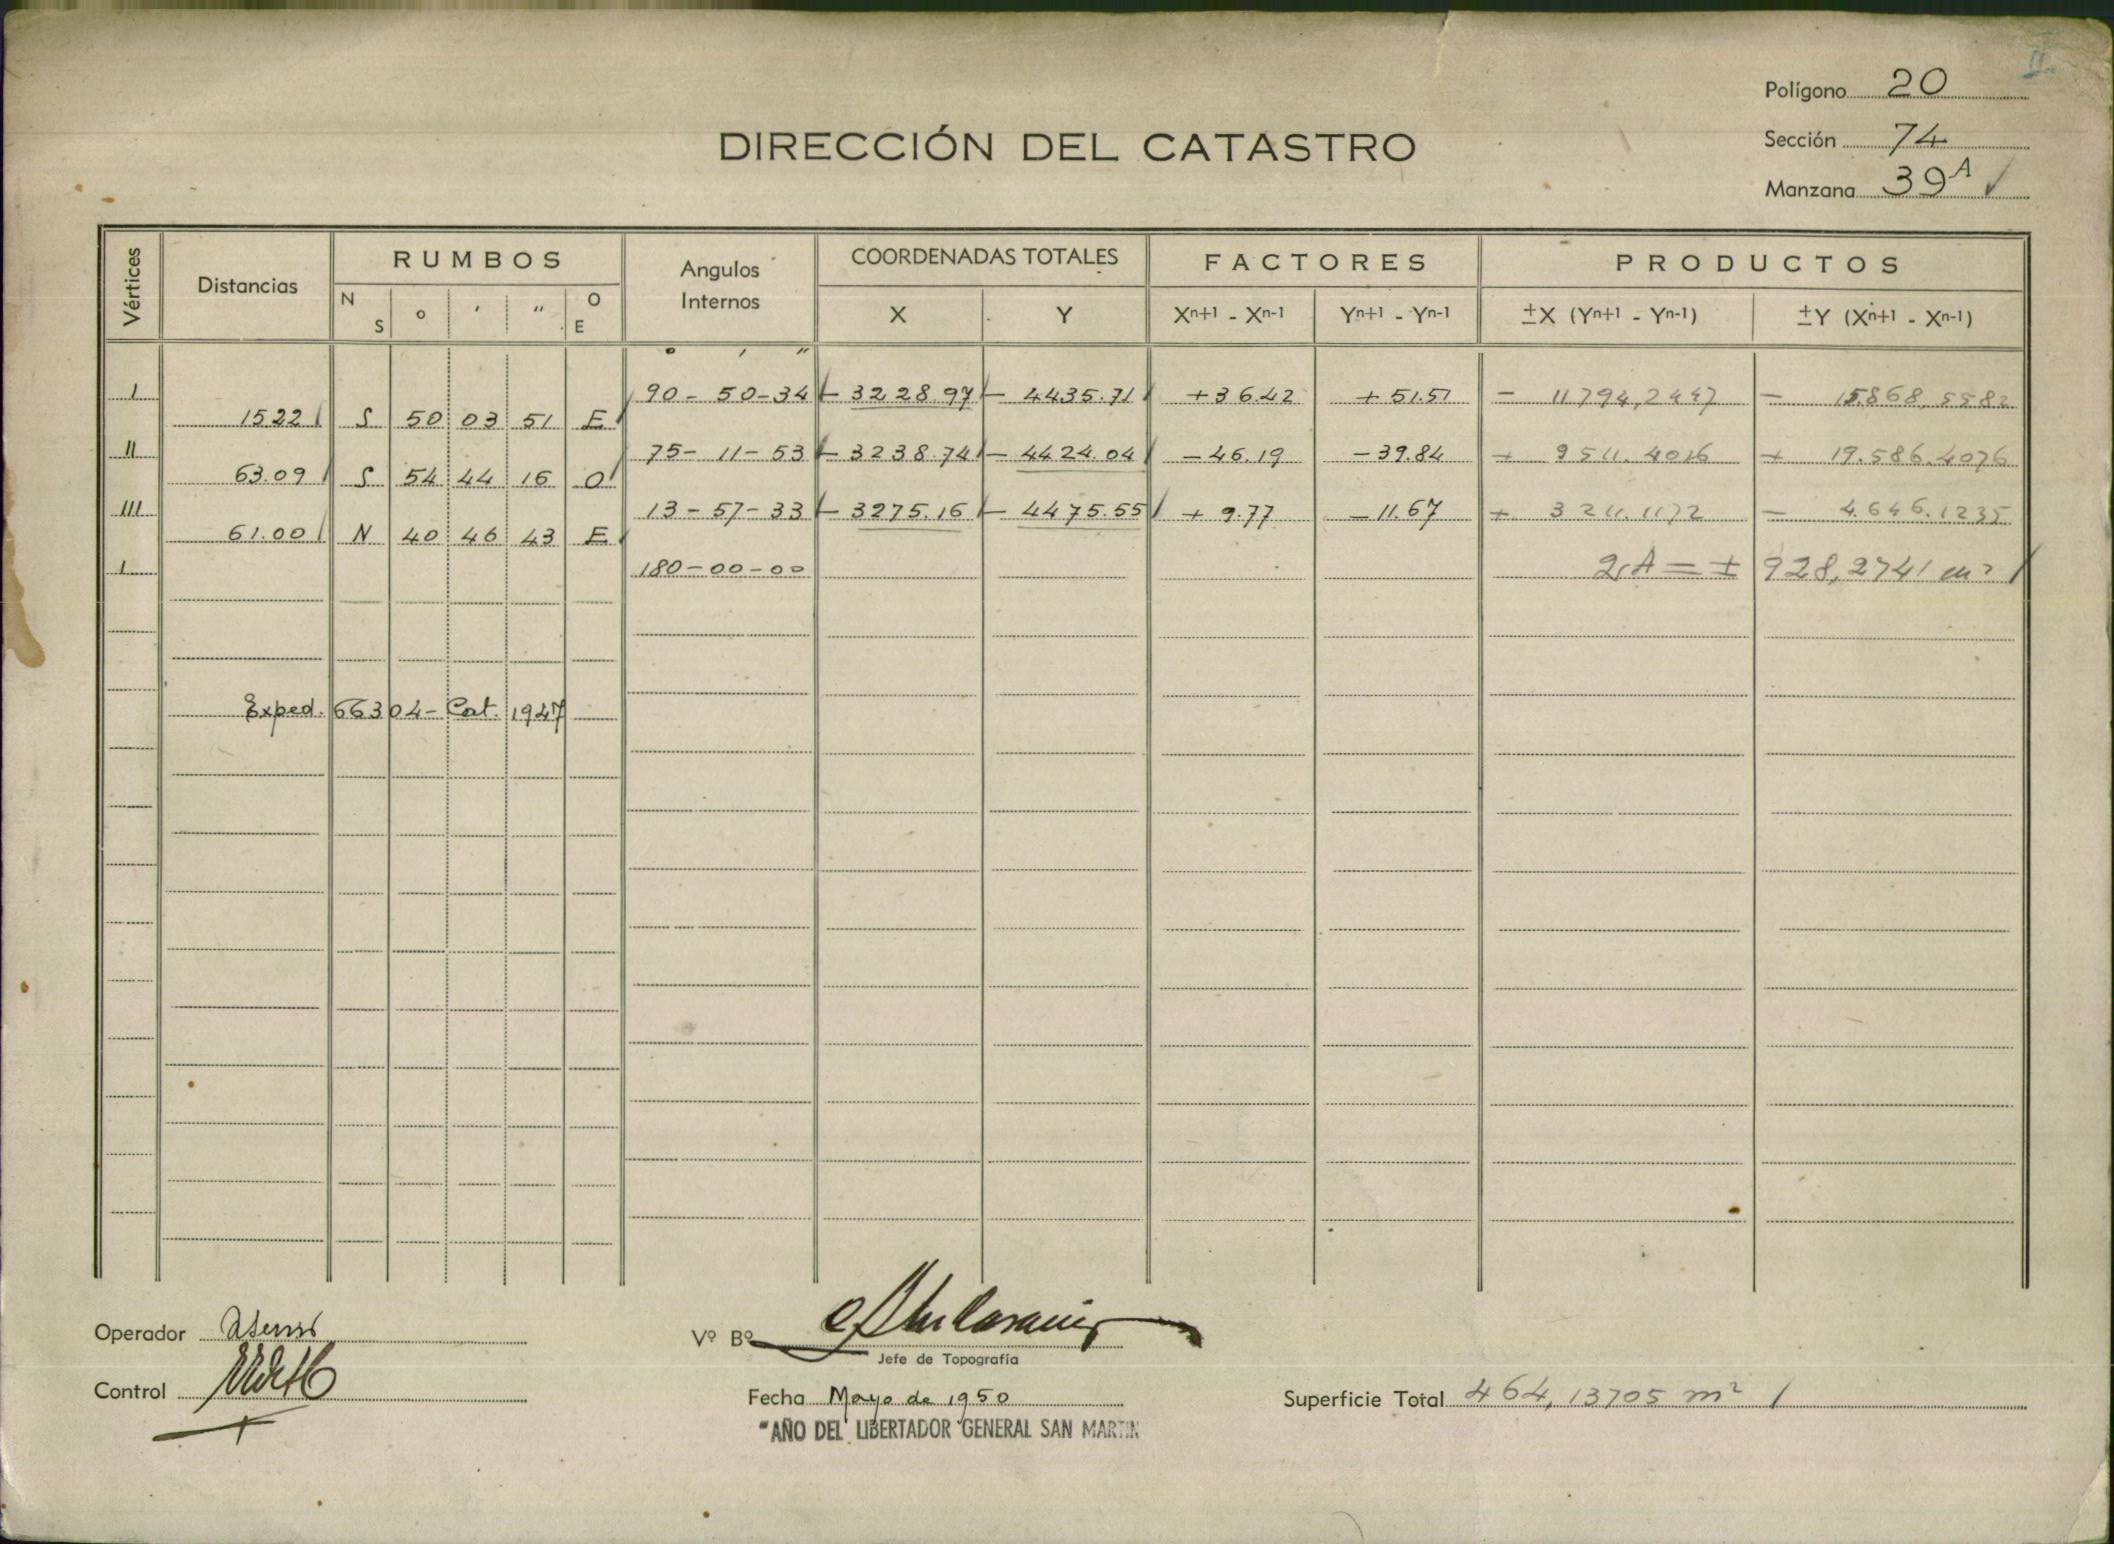 II
Polígono 20
DIRECCIÓN DEL CATASTRO
Sección 74
Manzana 39A ✓
Vértices Distancias RUMBOS Angulos Internos COORDENADAS TOTALES FACTORES PRODUCTOS
N S o ' " O E X Y Xn+1 - Xn-1 Yn+1 - Yn-1 ±X (Yn+1 - Yn-1) ±Y (Xn+1 - Xn-1)
o ' "
I 90 - 50 - 34 - 3228.97 - 4435.71 + 36.42 + 51.51 - 11794,2447 - 15.868,5582
15.22 S 50 03 51 E
II 75 - 11 - 53 - 3238.74 - 4424.04 - 46.19 - 39.84 + 9511.4016 + 19.586.4076
63.09 S 54 44 16 O
III 13 - 57 - 33 - 3275.16 - 4475.55 + 9.77 - 11.67 + 3211.1172 - 4.646.1235
61.00 N 40 46 43 E
I 180 - 00 - 00 2A = ± 928,2741 m²
Exped. 66304 - Cat. 1947
Operador
Vº Bº
Jefe de Topografía
Control
Fecha Mayo de 1950
Superficie Total 464,13705 m²
"AÑO DEL LIBERTADOR GENERAL SAN MARTIN